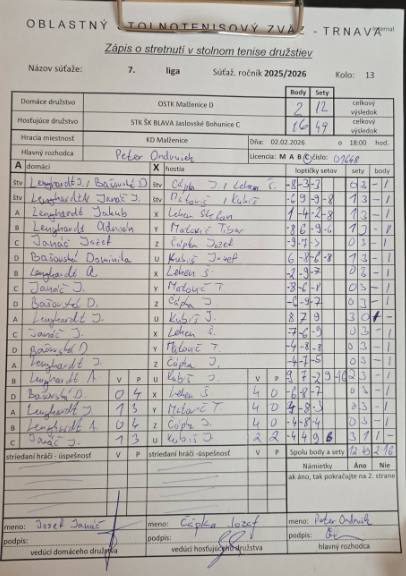 OBLASTNÝ STOLNOTENISOVÝ ZVÄZ - TRNAVA
Zápis o stretnutí v stolnom tenise družstiev
Názov súťaže: 7. liga Súťaž. ročník 2025/2026 Kolo: 13
Body Sety
Domáce družstvo OŠTK Malženice D 2 12 celkový výsledok
Hosťujúce družstvo STK ŠK BLAVA Jaslovské Bohunice C 16 49 celkový výsledok
Hracia miestnosť KD Malženice Dňa: 02.02.2026 o 18:00 hod.
Hlavný rozhodca Peter Ondrusek Licencia: M A B C číslo: 01648
A domáci X hostia loptičky setov sety body
štv Lenghardt J. Bašovská D. štv Cápka J. Lehen Š. -8-3-3 03 -1
štv Lenghardt Janáč J. štv Matovič Kubiš -6 9-9-8 13 -1
A Lenghardt Jakub X Lehen Štefan -1-4 2-8 13 -1
B Lenghardt Adrián Y Matovič Tibor -8 6-9-6 13
C Janáč Jozef Z Cápka Jozef -9-7-3 03 -1
D Bašovská Dominika U Kubiš Jozef 6-8-6-8 13 -1
B Lenghardt A. X Lehen Š. -2-9-7 03 -1
C Janáč J. Y Matovič T. -8-6-8 03 -1
D Bašovská D. Z Cápka J. -6-9-7 03 -1
A Lenghardt J. U Kubiš J. 8 7 9 30 1-
C Janáč J. X Lehen Š. -7-6-9 03 -1
D Bašovská D. Y Matovič T. -4-8-8 03 -1
A Lenghardt J. Z Cápka J. -4-7-5 03 -1
B Lenghardt A. V P U Kubiš J. V P
D Bašovská D. 0 4 X Lehen Š. 4 0 -6-8-7 03 -1
A Lenghardt J. 1 3 Y Matovič T. 4 0 03 -1
B Lenghardt A. 0 4 Z Cápka J. 4 0 -4-8-4 03 -1
C Janáč J. 1 3 U Kubiš J. 2 2 31 1-
striedaní hráči - úspešnosť V P striedaní hráči - úspešnosť V P Spolu body a sety 12 49 2 16
Námietky Áno Nie
ak áno, tak pokračujte na 2. strane
meno: Jozef Janáč meno: Cápka Jozef meno: Peter Ondrusek
podpis: podpis: podpis:
vedúci domáceho družstva vedúci hosťujúceho družstva hlavný rozhodca